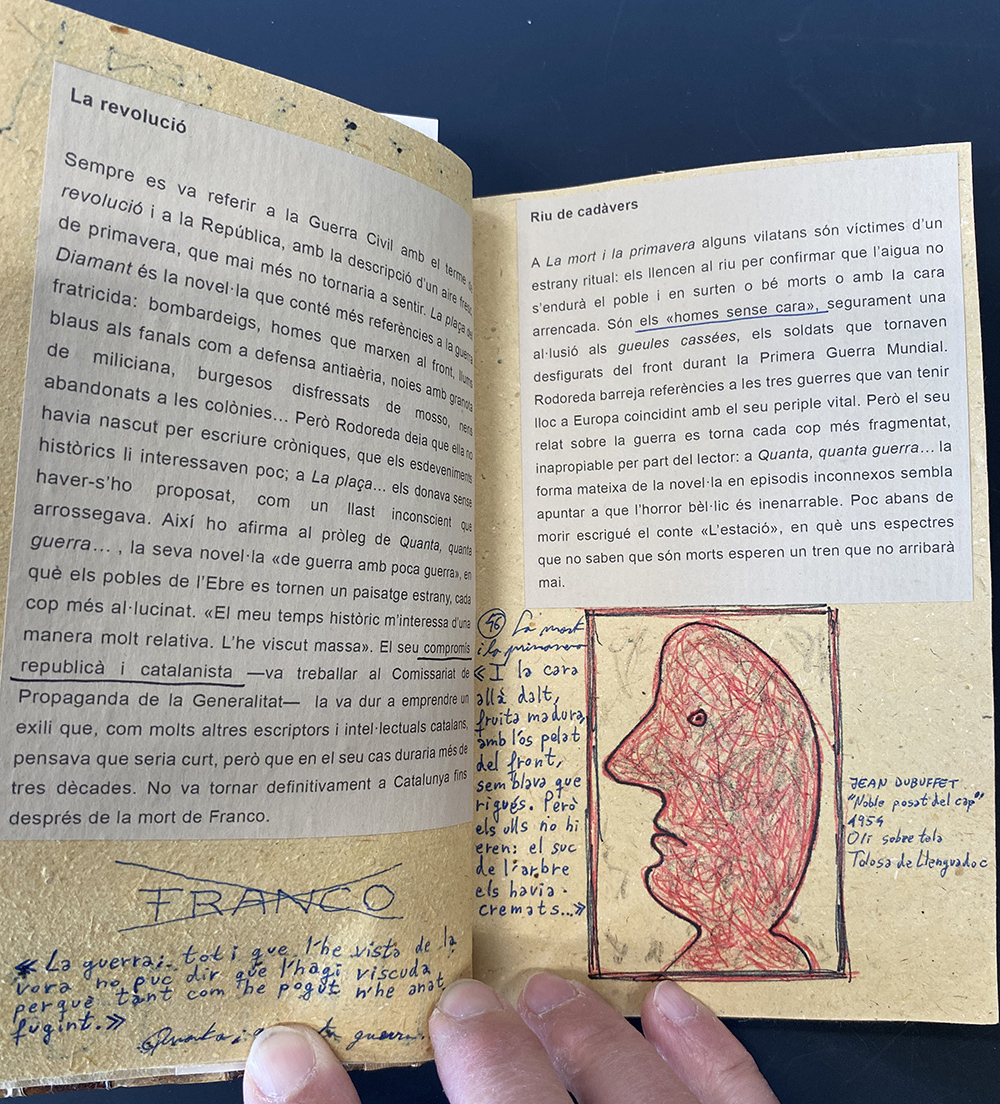 La revolució
Sempre es va referir a la Guerra Civil amb el terme de
revolució i a la República, amb la descripció d'un aire fresc
de primavera, que mai més no tornaria a sentir. La plaça del
Diamant és la novel·la que conté més referències a la guerra
fratricida: bombardeigs, homes que marxen al front, llums
blaus als fanals com a defensa antiaèria, noies amb granota
de miliciana, burgesos disfressats de mosso, nens
abandonats a les colònies... Però Rodoreda deia que ella no
havia nascut per escriure cròniques, que els esdeveniments
històrics li interessaven poc; a La plaça... els donava sense
haver-s'ho proposat, com un llast inconscient que
arrossegava. Així ho afirma al pròleg de Quanta, quanta
guerra... , la seva novel·la «de guerra amb poca guerra», en
què els pobles de l'Ebre es tornen un paisatge estrany, cada
cop més al·lucinat. «El meu temps històric m'interessa d'una
manera molt relativa. L'he viscut massa». El seu compromís
republicà i catalanista —va treballar al Comissariat de
Propaganda de la Generalitat— la va dur a emprendre un
exili que, com molts altres escriptors i intel·lectuals catalans,
pensava que seria curt, però que en el seu cas duraria més de
tres dècades. No va tornar definitivament a Catalunya fins
després de la mort de Franco.
FRANCO
«La guerra, tot i que l'he vista de la
vora no puc dir que l'hagi viscuda
perquè tant com he pogut n'he anat
fugint.»
Quanta, guerra.
Riu de cadàvers
A La mort i la primavera alguns vilatans són víctimes d'un
estrany ritual: els llencen al riu per confirmar que l'aigua no
s'endurà el poble i en surten o bé morts o amb la cara
arrencada. Són els «homes sense cara», segurament una
al·lusió als gueules cassées, els soldats que tornaven
desfigurats del front durant la Primera Guerra Mundial.
Rodoreda barreja referències a les tres guerres que van tenir
lloc a Europa coincidint amb el seu periple vital. Però el seu
relat sobre la guerra es torna cada cop més fragmentat,
inapropiable per part del lector: a Quanta, quanta guerra... la
forma mateixa de la novel·la en episodis inconnexos sembla
apuntar a que l'horror bèl·lic és inenarrable. Poc abans de
morir escrigué el conte «L'estació», en què uns espectres
que no saben que són morts esperen un tren que no arribarà
mai.
46 La mort
i la primavera
«I la cara
allà dalt,
fruita madura,
amb l'os pelat
del front,
semblava que
rigués. Però
els ulls no hi
eren: el suc
de l'arbre
els havia
cremats...»
JEAN DUBUFFET
"Noble posat del cap"
1954
Oli sobre tela
Tolosa de Llenguadoc